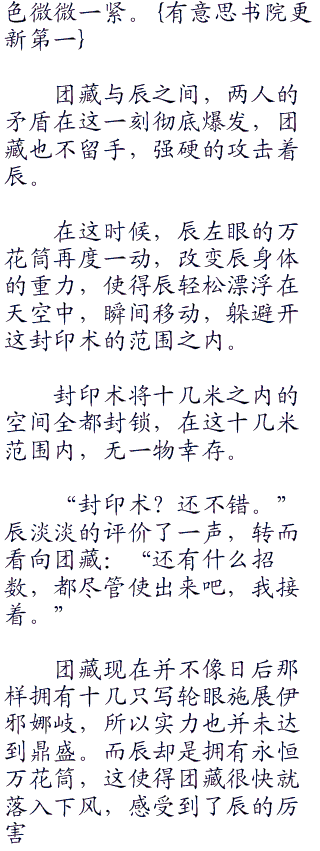 色微微一紧。{有意思书院更
新第一}
团藏与辰之间，两人的
矛盾在这一刻彻底爆发，团
藏也不留手，强硬的攻击着
辰。
在这时候，辰左眼的万
花筒再度一动，改变辰身体
的重力，使得辰轻松漂浮在
天空中，瞬间移动，躲避开
这封印术的范围之内。
封印术将十几米之内的
空间全都封锁，在这十几米
范围内，无一物幸存。
“封印术？还不错。”
辰淡淡的评价了一声，转而
看向团藏：“还有什么招
数，都尽管使出来吧，我接
着。”
团藏现在并不像日后那
样拥有十几只写轮眼施展伊
邪娜岐，所以实力也并未达
到鼎盛。而辰却是拥有永恒
万花筒，这使得团藏很快就
落入下风，感受到了辰的厉
害